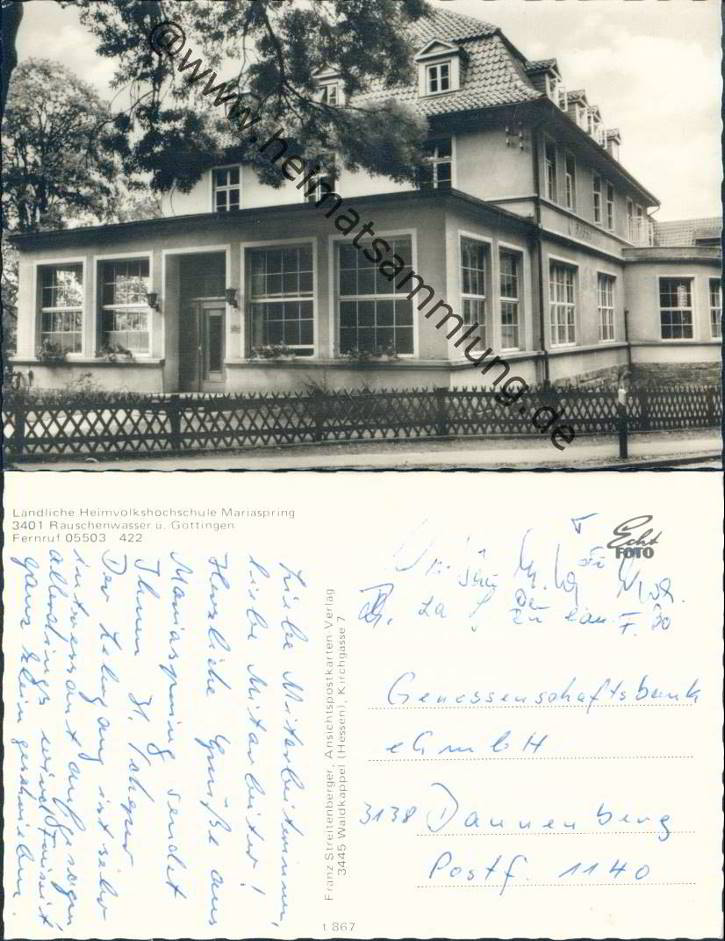 ©www.heimatsammlung.de
Ländliche Heimvolkshochschule Mariaspring
3401 Rauschenwasser ü. Göttingen
Fernruf 05503 422
Echt
FOTO
Liebe Mitarbeiterinnen,
liebe Mitarbeiter!
Herzliche Grüße aus
Mariaspring sendet
Ihnen
Der Lehrgang ist sehr
interessant aufgezogen,
allerdings wird Freizeit
ganz klein geschrieben.
Franz Streitenberger, Ansichtspostkarten-Verlag
3445 Waldkappel (Hessen), Kirchgasse 7
Genossenschaftsbank
eGmbH
3138 Dannenberg
Postf. 1140
t 867